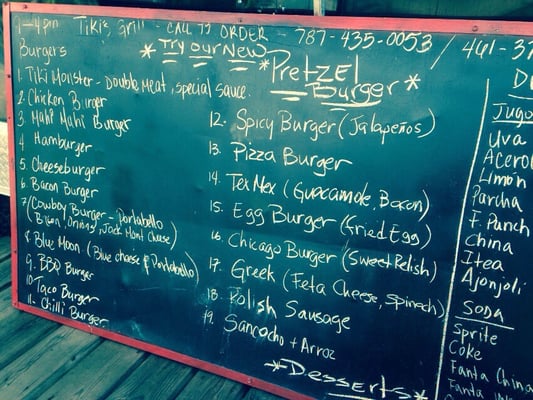 9-4pm Tiki's Grill - CALL TO ORDER - 787-435-0053 / 461-37
Burgers
* Try our New *
* Pretzel Burger *
1. Tiki Monster - Double Meat, special sauce.
2. Chicken Burger
3. Mahi Mahi Burger
4 Hamburger
5. Cheeseburger
6. Bacon Burger
7/Cowboy Burger - Portabello
(Bacon, Onions, Jack Mont Cheese)
8 Blue Moon (Blue cheese & Portabello)
9. BBQ Burger
10 Taco Burger
11. Chilli Burger
12. Spicy Burger (Jalapeños)
13. Pizza Burger
14. Tex Mex (Guacamole, Bacon)
15. Egg Burger (Fried Egg)
16. Chicago Burger (Sweet Relish)
17. Greek (Feta Cheese, Spinach)
18. Polish Sausage
19. Sancocho + Arroz
* Desserts *
Jugo
Uva
Acero
Limón
Parcha
F. Punch
China
Itea
Ajonjoli
SODA
Sprite
Coke
Fanta China
Fanta